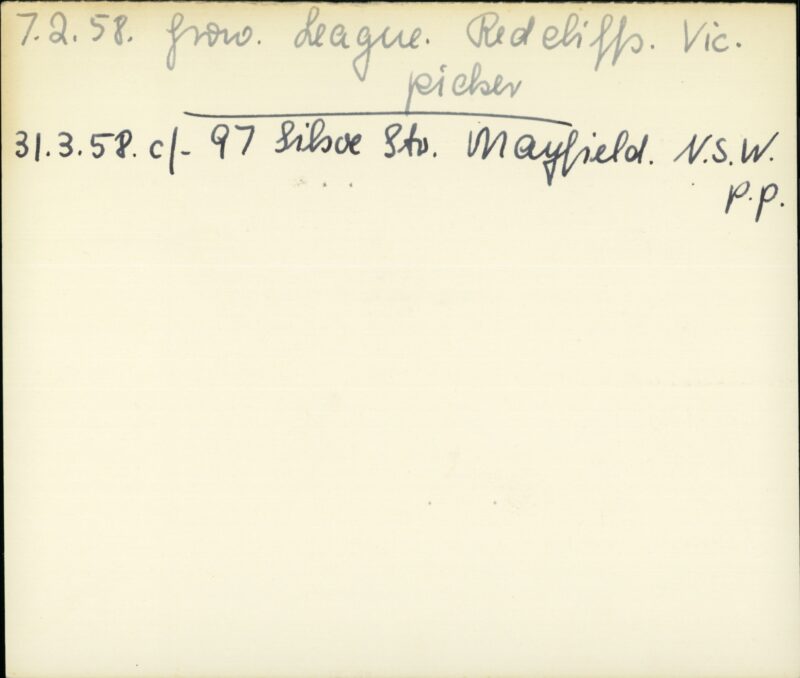 7.2.58. Grow. League. Redcliffs. Vic.
picker
31.3.58. c/- 97 Silsoe Str. Mayfield. N.S.W.
p.p.